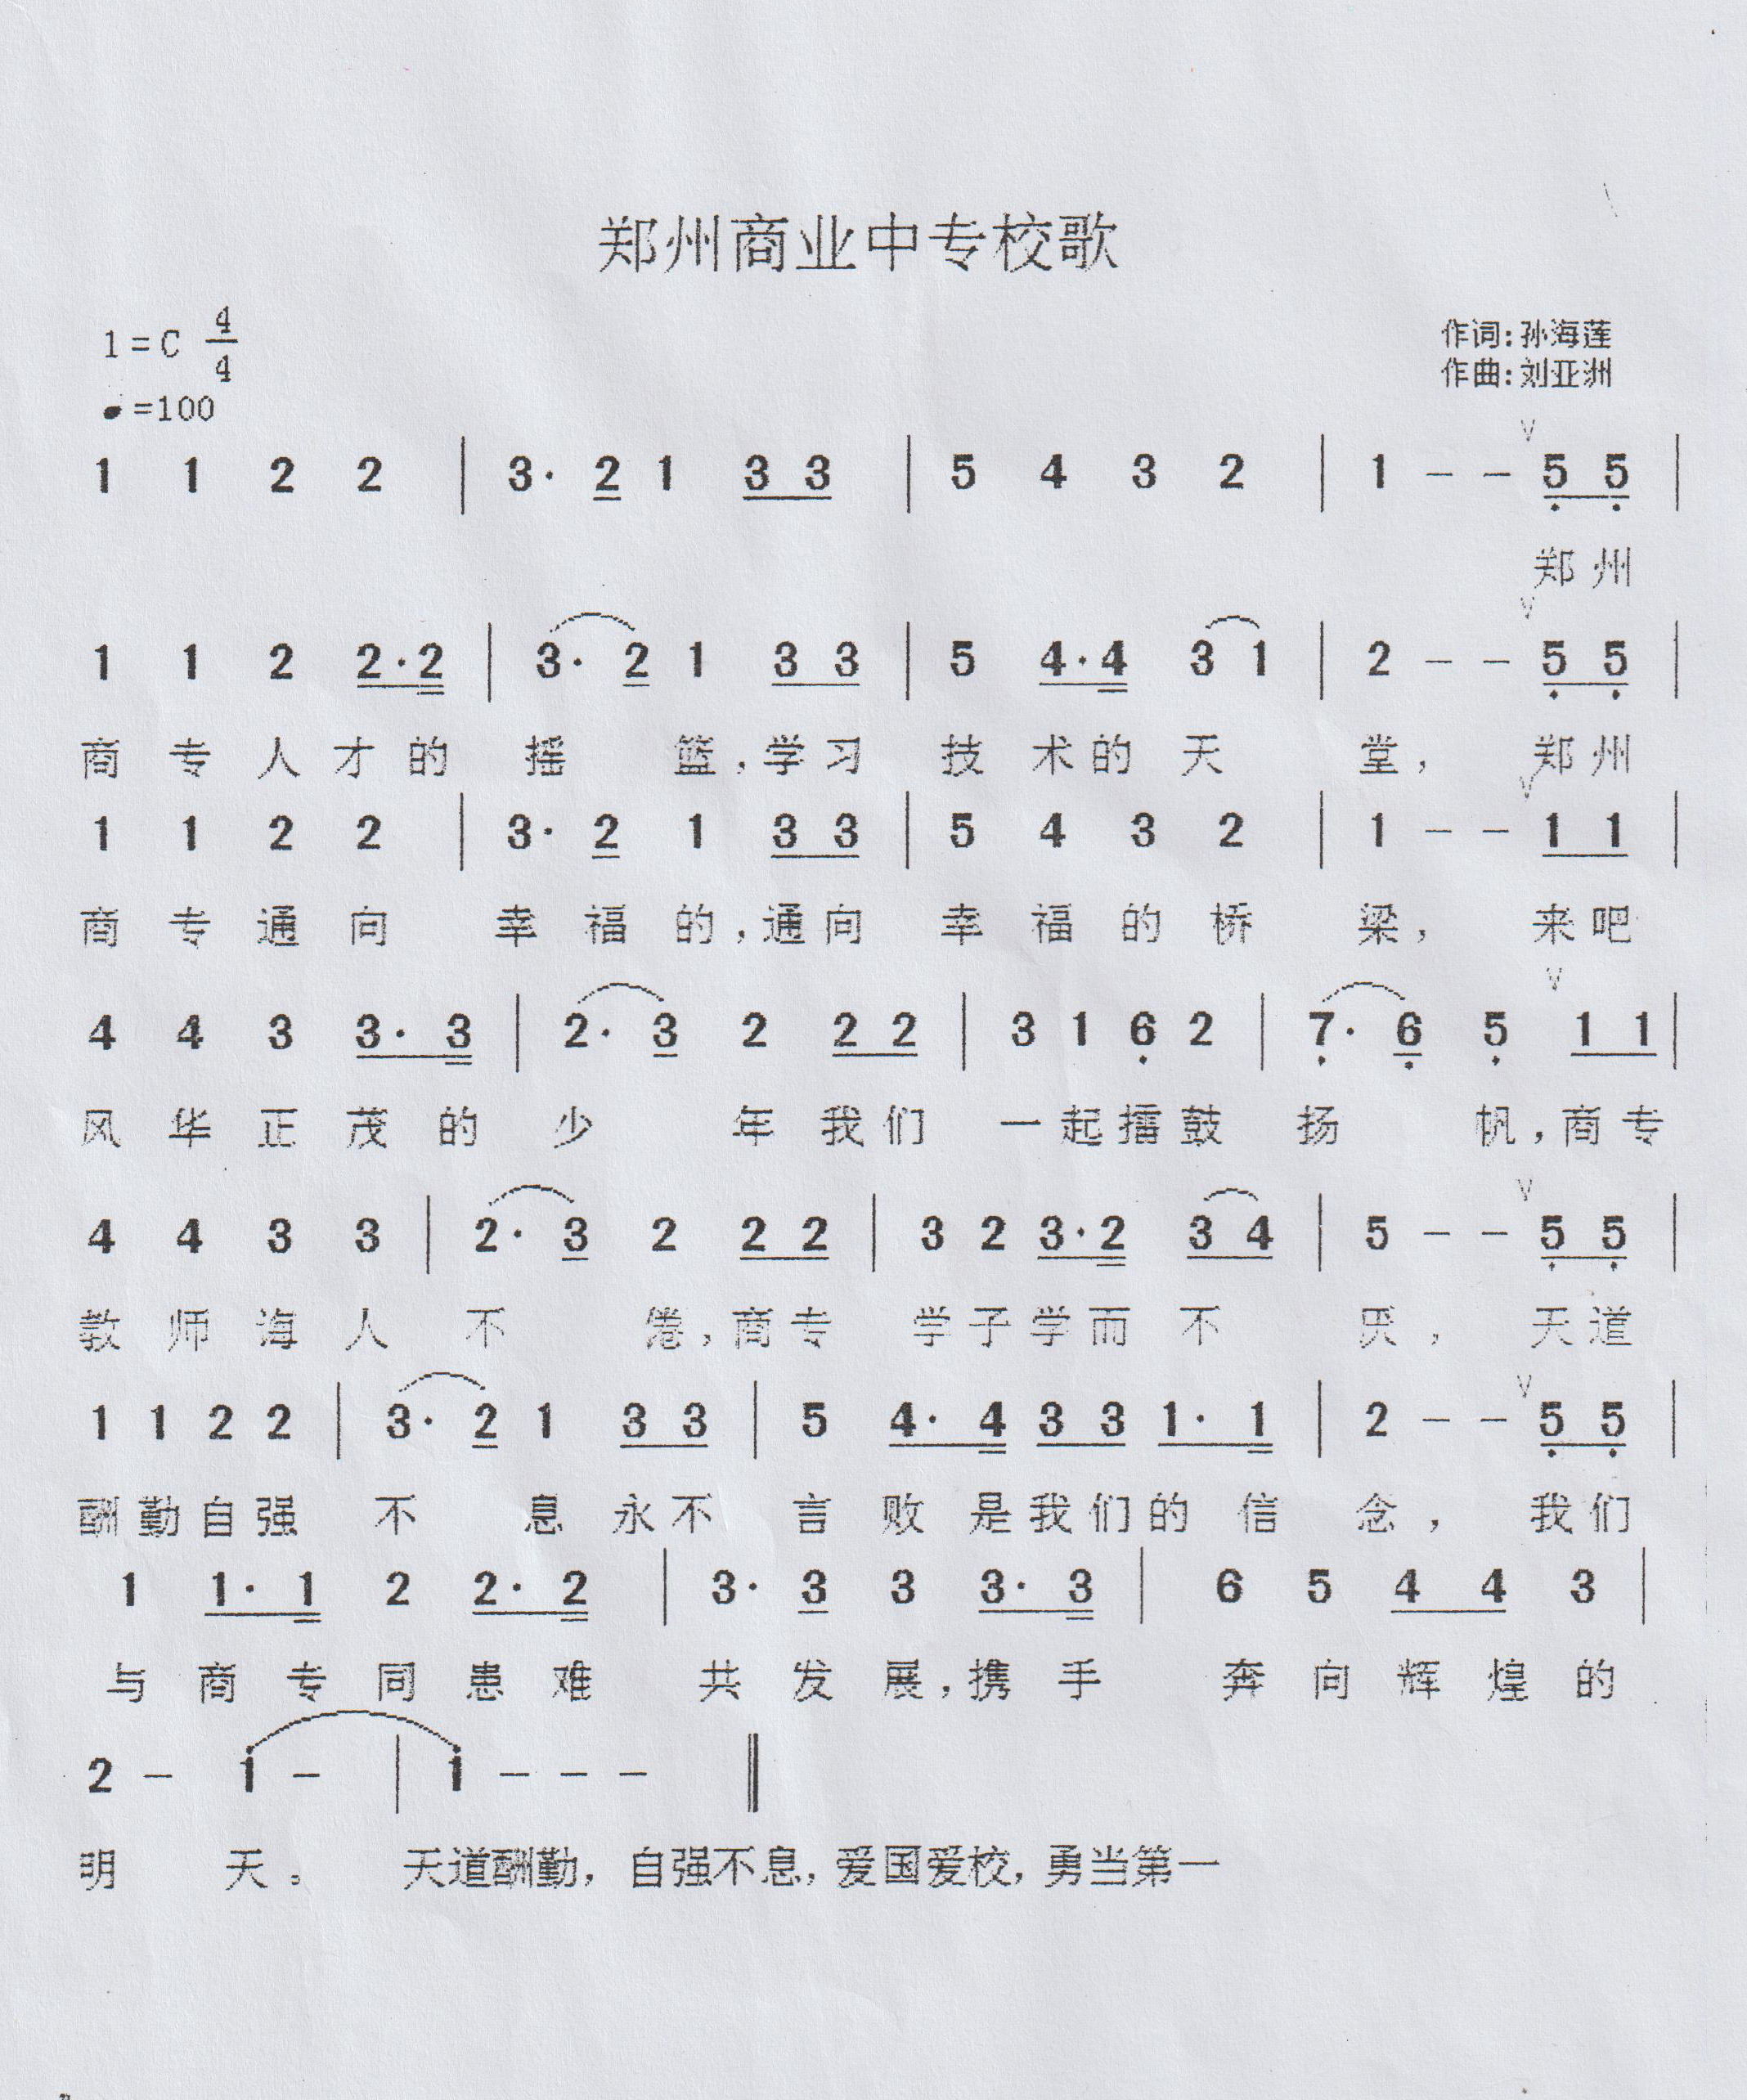 郑州商业中专校歌
1=C 4/4
作词:孙海莲
♩=100
作曲:刘亚洲
1 1 2 2 | 3· 2 1 3 3 | 5 4 3 2 | 1 - - 5 5 |
郑州
1 1 2 2·2 | 3· 2 1 3 3 | 5 4·4 3 1 | 2 - - 5 5 |
商专人才的摇篮,学习技术的天堂,郑州
1 1 2 2 | 3· 2 1 3 3 | 5 4 3 2 | 1 - - 1 1 |
商专通向幸福的,通向幸福的桥梁,来吧
4 4 3 3· 3 | 2· 3 2 2 2 | 3 1 6 2 | 7· 6 5 1 1 |
风华正茂的少年我们一起擂鼓扬帆,商专
4 4 3 3 | 2· 3 2 2 2 | 3 2 3·2 3 4 | 5 - - 5 5 |
教师诲人不倦,商专学子学而不厌,天道
1 1 2 2 | 3· 2 1 3 3 | 5 4· 4 3 3 1· 1 | 2 - - 5 5 |
酬勤自强不息永不言败是我们的信念,我们
1 1· 1 2 2· 2 | 3· 3 3 3· 3 | 6 5 4 4 3 |
与商专同患难共发展,携手奔向辉煌的
2 - 1 - | 1 - - - ‖
明天。天道酬勤,自强不息,爱国爱校,勇当第一